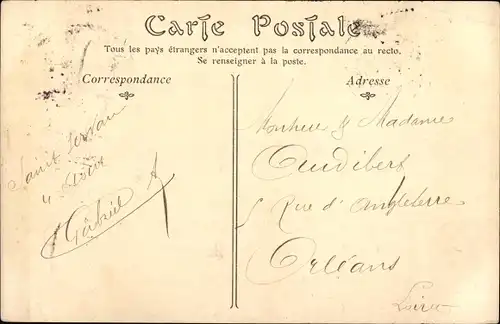 Carte Postale
Tous les pays étrangers n'acceptent pas la correspondance au recto.
Se renseigner à la poste.
Correspondance
Adresse
Saint Servan
Gabriel A
Monsieur & Madame
Audibert
5 Rue d'Angleterre
Orléans
Loiret